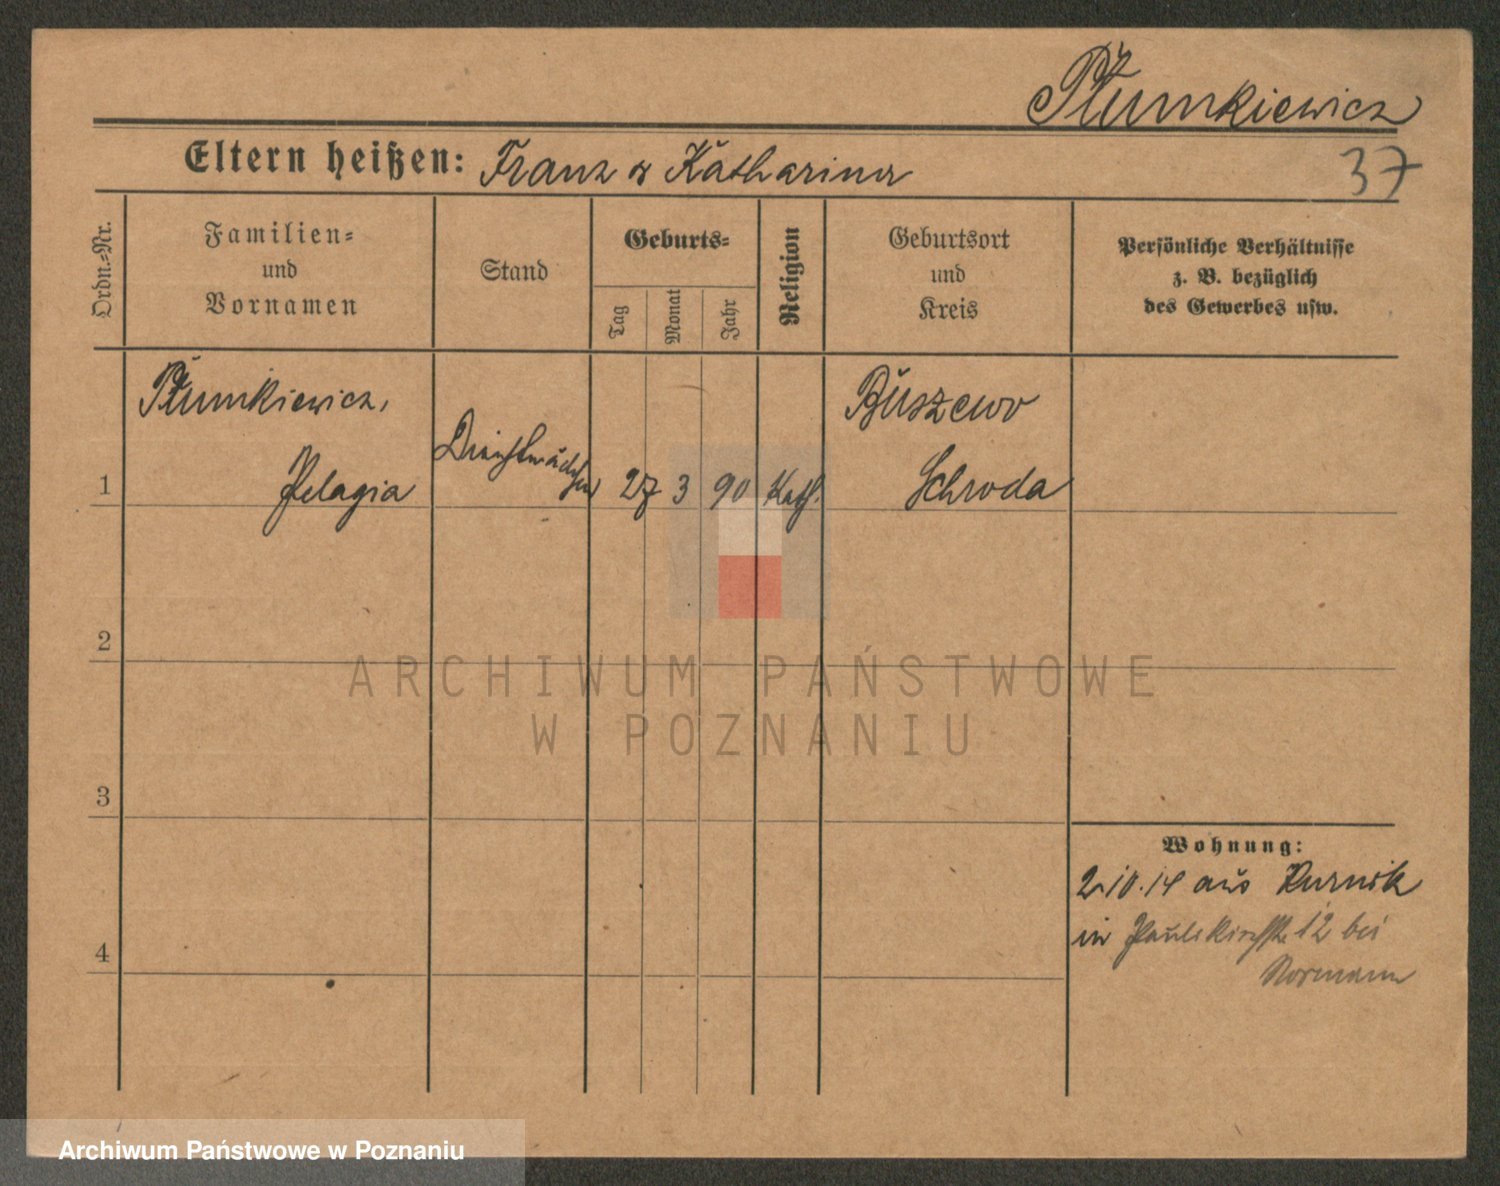 Płumkiewicz
Eltern heißen: Franz u Katharina
37
Ordn.-Nr.
Familien-
und
Vornamen
Stand
Geburts-
Tag
Monat
Jahr
Religion
Geburtsort
und
Kreis
Persönliche Verhältnisse
z. B. bezüglich
des Gewerbes usw.
Płumkiewicz,
1 Pelagia Dienstmädchen 27 3 90 Kath.
Buszewo
Schroda
2
3
4
Wohnung:
2.10.14 aus Kurnik
in Paulikirchstr. 12 bei
Normann
ARCHIWUM PAŃSTWOWE
W POZNANIU
Archiwum Państwowe w Poznaniu